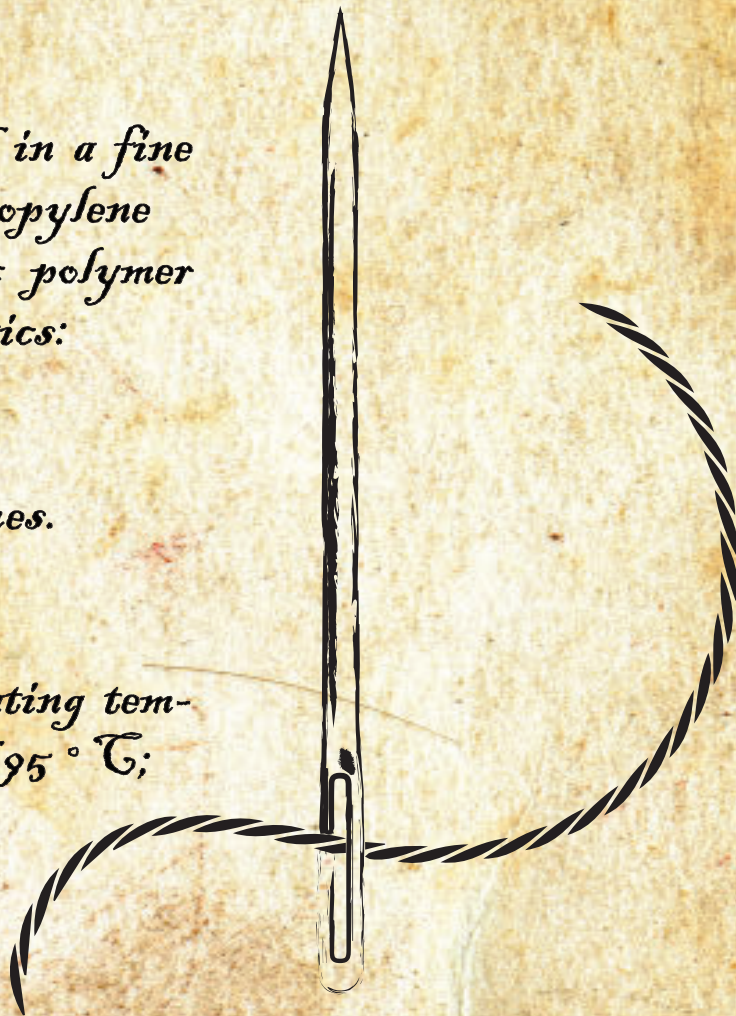 in a fine
opylene
polymer
ics:
es.
ting tem-
95 °C;